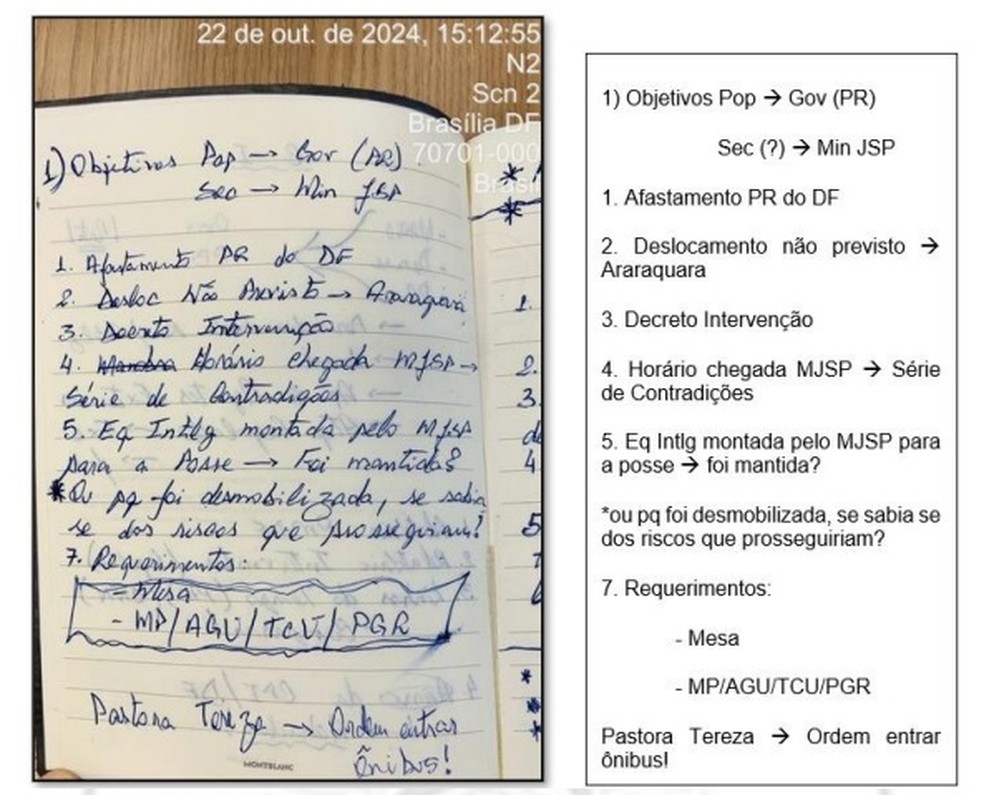 22 de out. de 2024, 15:12:55
N2
Scn 2
Brasília DF
70701-000
Brasil
1) Objetivos Pop → Gov (PR)
Sec → Min JSP
1. Afastamento PR do DF
2. Desloc Não Previsto → Araraquara
3. Decreto Intervenção
4. Horário chegada MJSP →
Série de Contradições
5. Eq Intlg montada pelo MJSP
para a Posse → Foi mantida?
*Ou pq foi desmobilizada, se sabia
se dos riscos que prosseguiriam?
7. Requerimentos:
- Mesa
- MP/AGU/TCU/PGR
Pastora Tereza → Ordem entrar
Ônibus!
MONTBLANC
1.
2.
3.
4
5
1) Objetivos Pop → Gov (PR)
Sec (?) → Min JSP
1. Afastamento PR do DF
2. Deslocamento não previsto →
Araraquara
3. Decreto Intervenção
4. Horário chegada MJSP → Série
de Contradições
5. Eq Intlg montada pelo MJSP para
a posse → foi mantida?
*ou pq foi desmobilizada, se sabia se
dos riscos que prosseguiriam?
7. Requerimentos:
- Mesa
- MP/AGU/TCU/PGR
Pastora Tereza → Ordem entrar
ônibus!